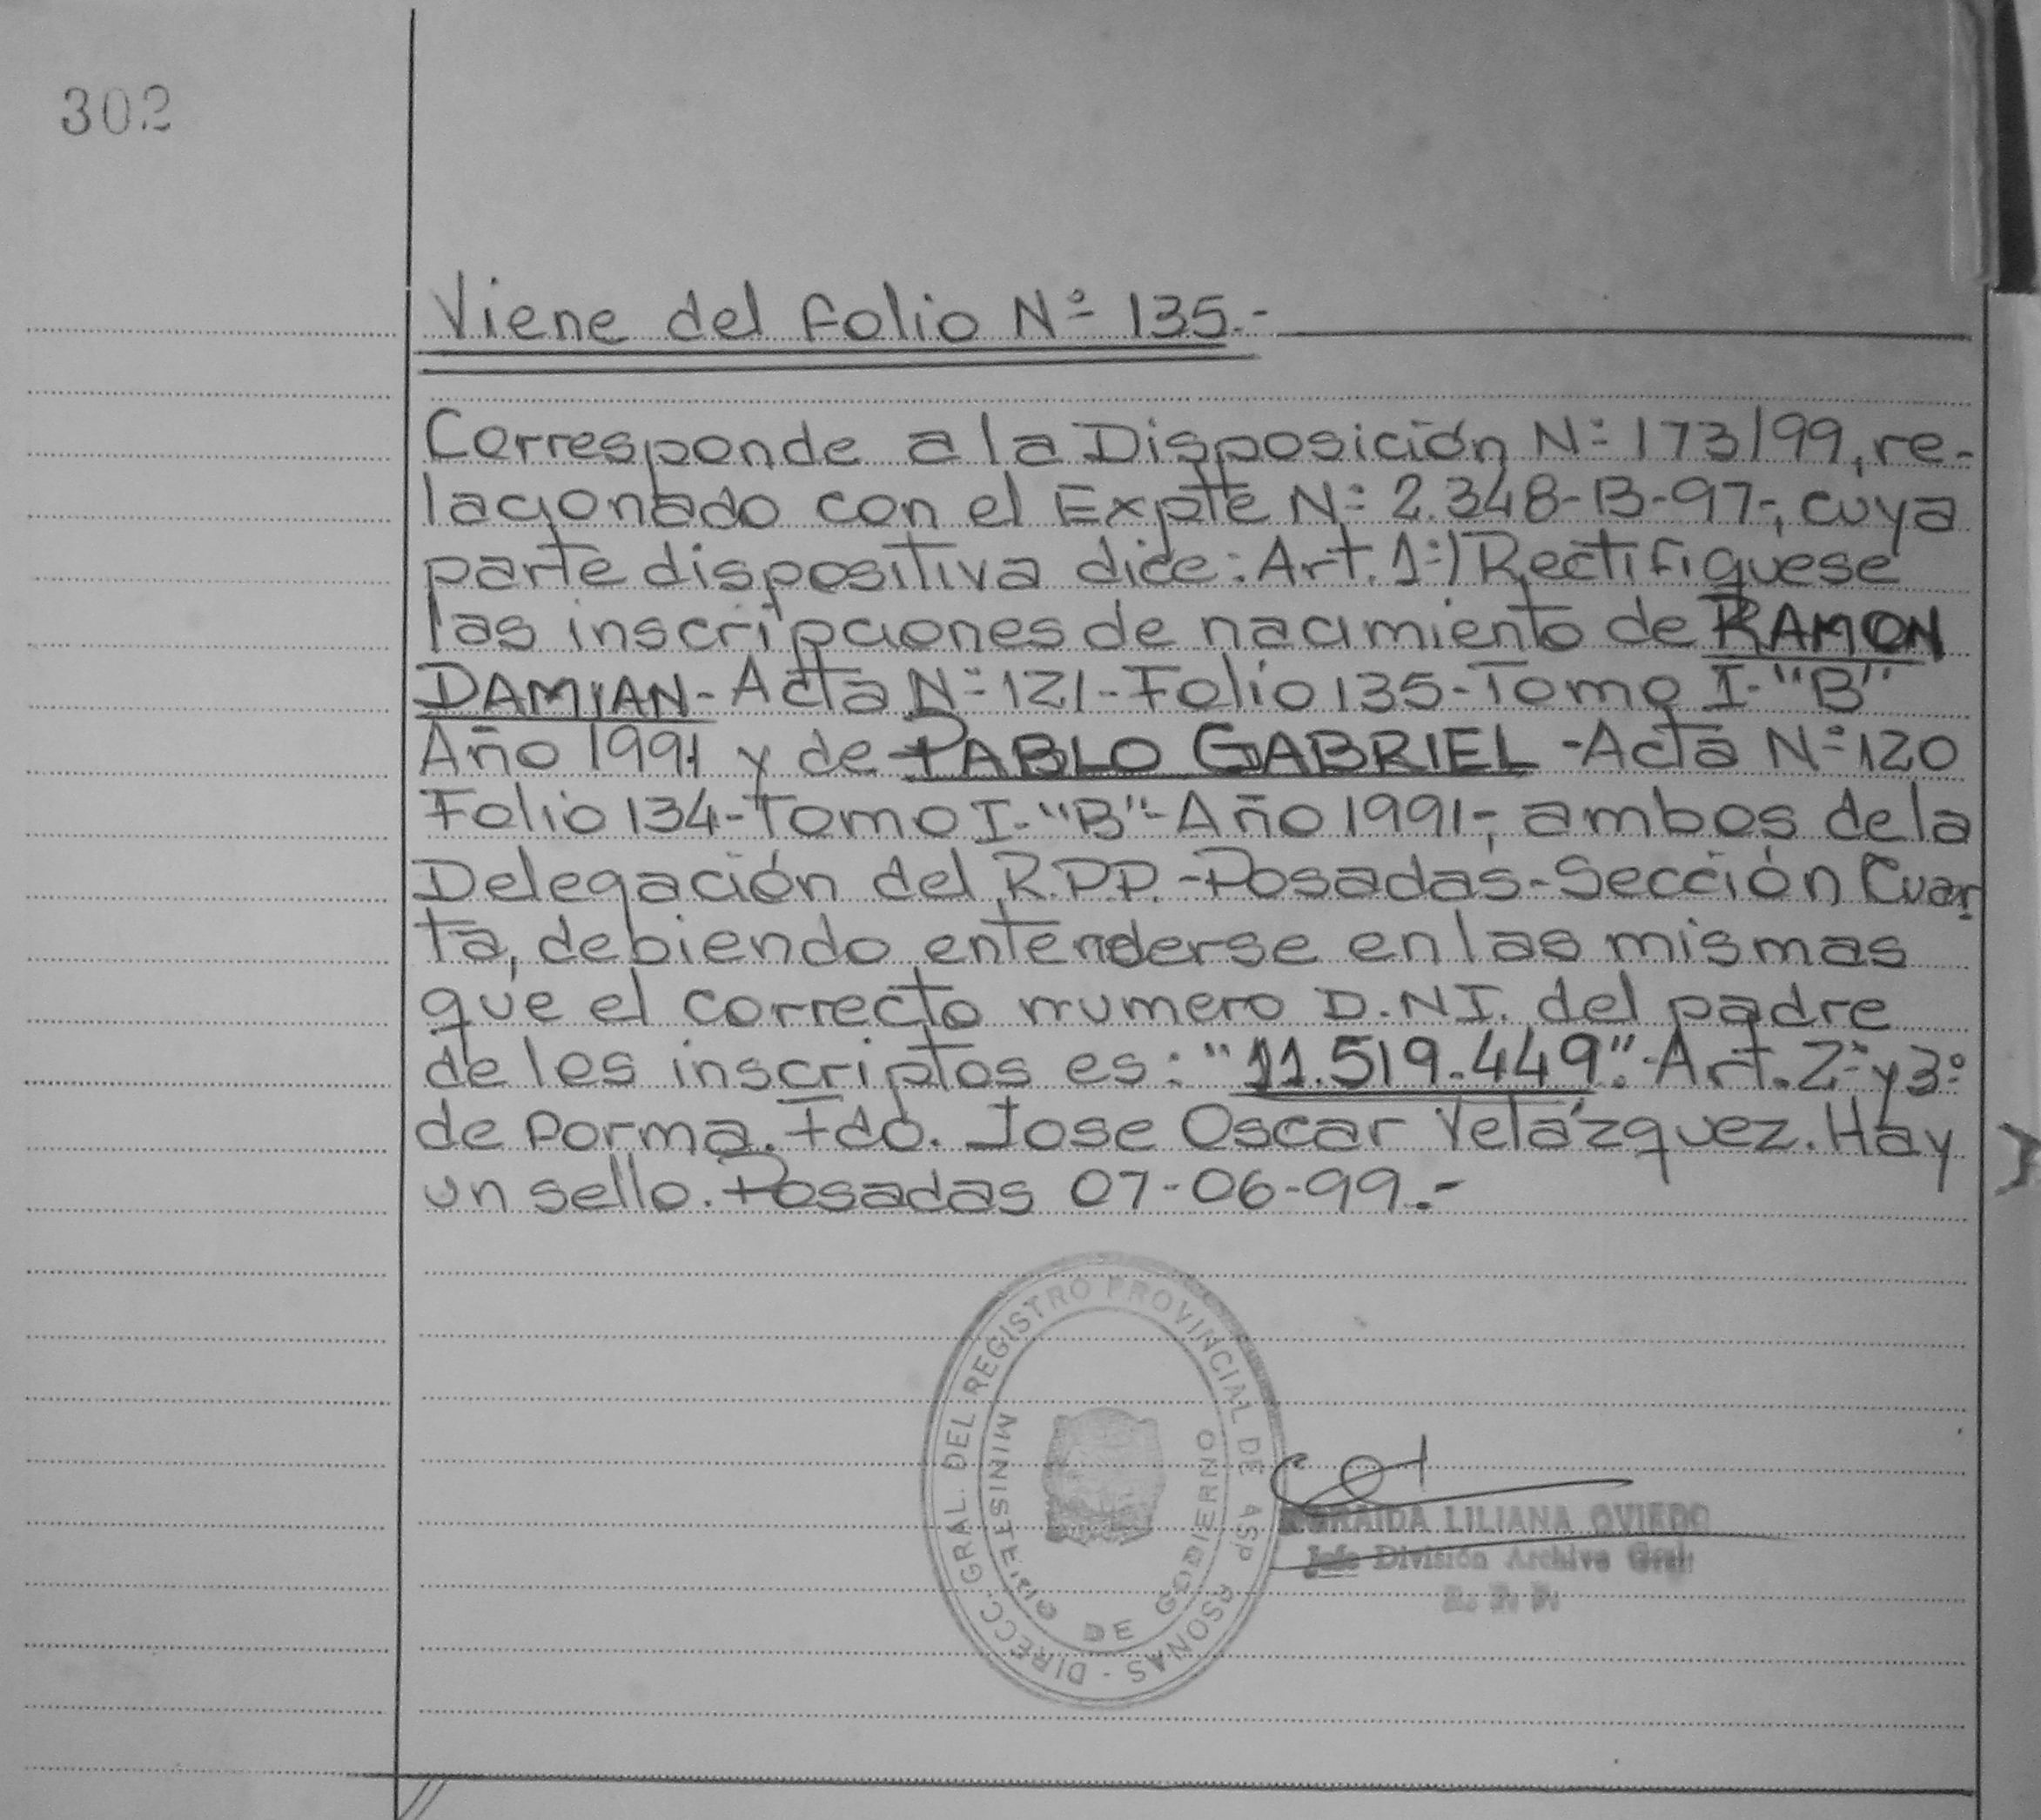 302
Viene del folio Nº 135.-
Corresponde a la Disposición Nº 173/99, re-
lacionado con el Expte Nº 2.348-B-97-, cuya
parte dispositiva dice: Art. 1º) Rectifiquese
las inscripciones de nacimiento de RAMON
DAMIAN- Acta Nº 121- Folio 135- Tomo I- "B"
Año 1991 y de PABLO GABRIEL - Acta Nº 120
Folio 134- Tomo I- "B"- Año 1991-, ambos de la
Delegación del R.P.P. -Posadas- Sección Cuar
ta, debiendo entenderse en las mismas
que el correcto numero D.N.I. del padre
de los inscriptos es: "11.519.449".- Art. 2º y 3º
de forma. Fdo. Jose Oscar Velázquez. Hay
un sello. Posadas 07-06-99.-
DIRECC. GRAL. DEL REGISTRO PROVINCIAL DE PERSONAS -
MINISTERIO DE GOBIERNO
LILIANA OVIEDO
Jefe División Archivo Gral.
R. P. P.